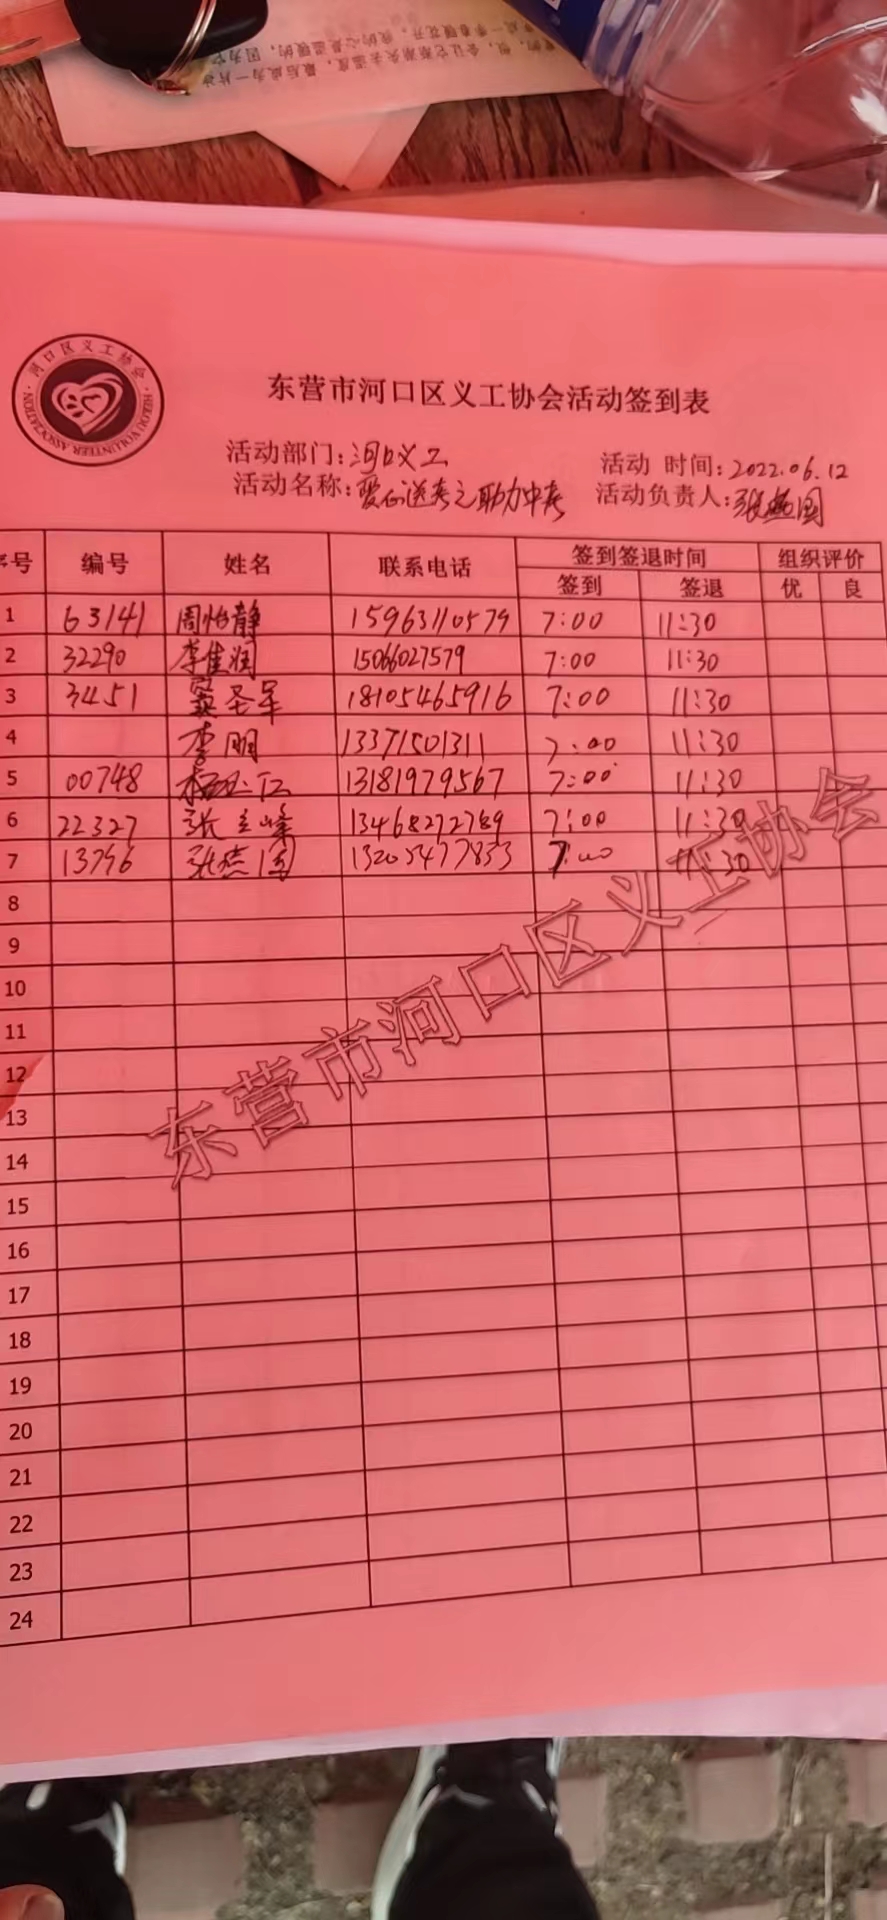 河口区义工协会
HEKOU VOLUNTEER ASSOCIATION
东营市河口区义工协会活动签到表
活动部门：河口义工 活动 时间：2022.06.12
活动名称：爱心送考之助力中考 活动负责人：张燕国
序号 编号 姓名 联系电话 签到签退时间 组织评价
签到 签退 优 良
1 63141 周怡静 15963110579 7:00 11:30
2 32290 李佳润 15066027579 7:00 11:30
3 3451 窦圣军 18105465916 7:00 11:30
4 李明 13371501311 7:00 11:30
5 00748 13181979567 7:00 11:30
6 22327 张立峰 13468272789 7:00 11:30
7 13796 张燕国 13205477833 7:00 11:30
8
9
10
11
12
13
14
15
16
17
18
19
20
21
22
23
24
东营市河口区义工协会